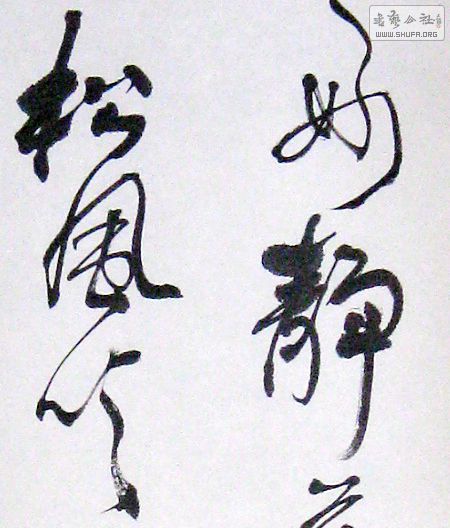 好靜
松風吹
書藝公社
WWW.SHUFA.ORG